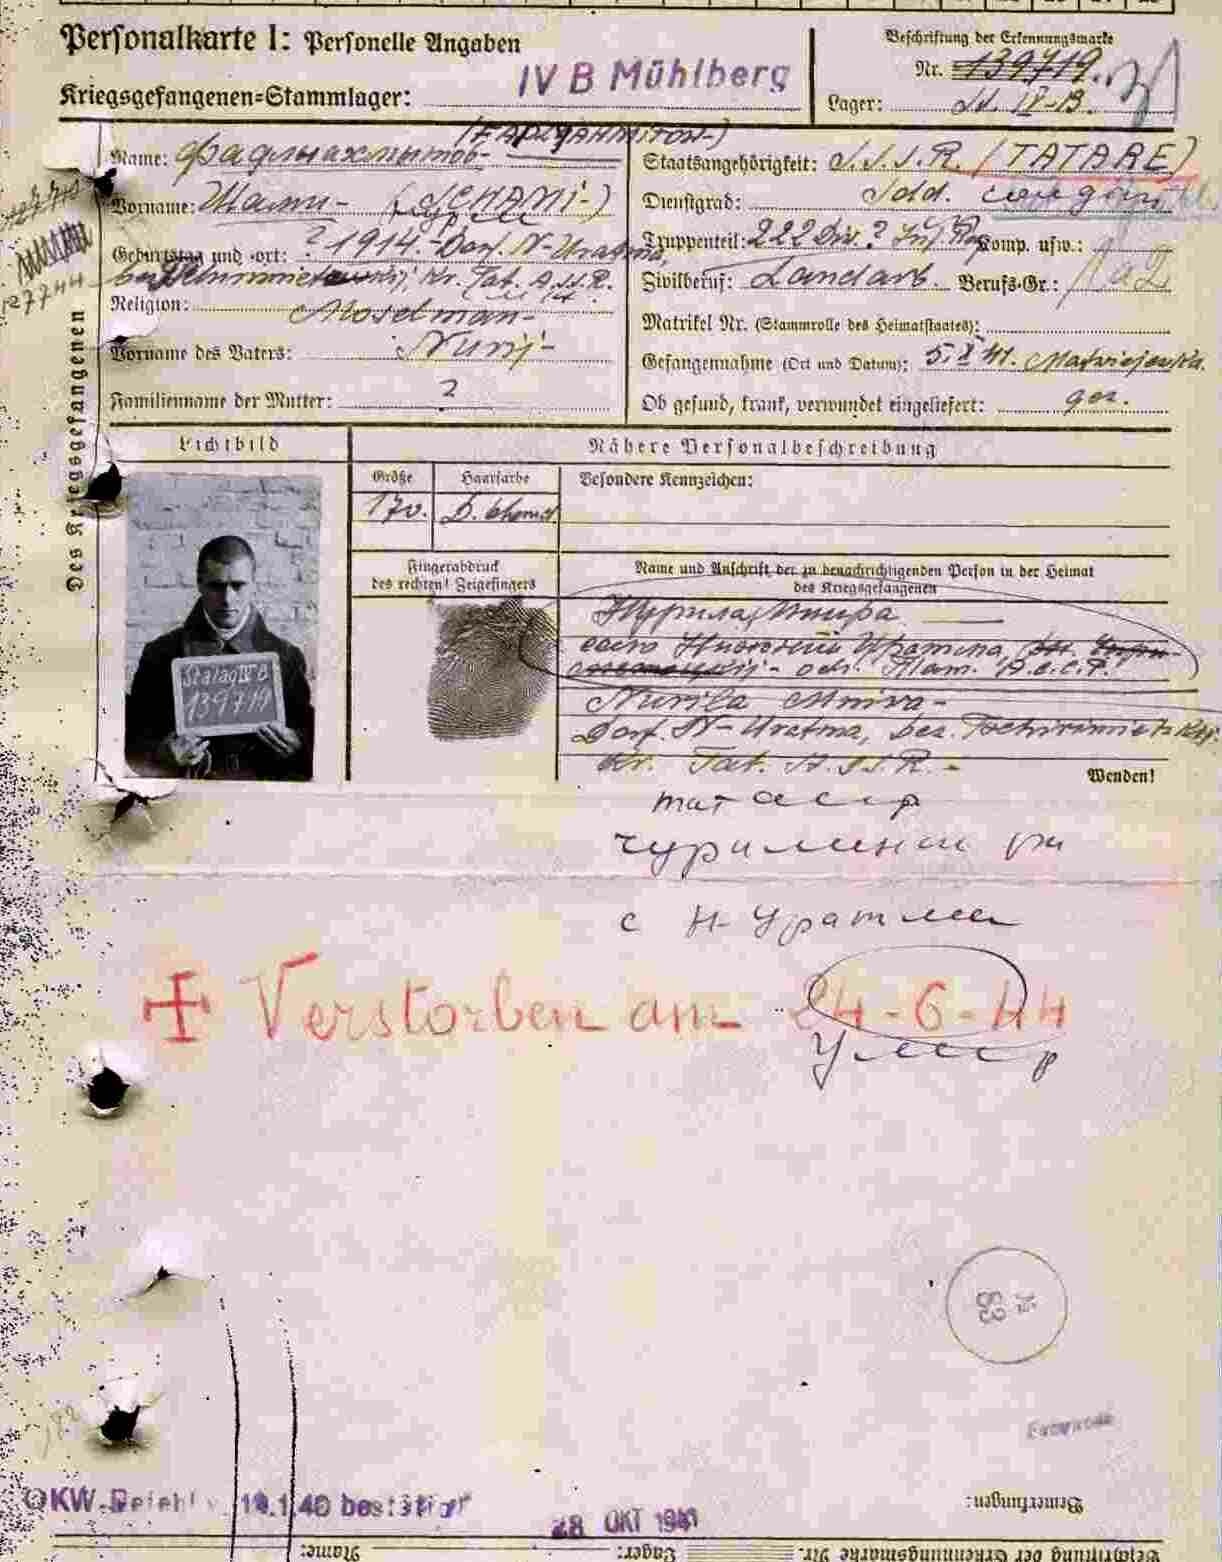 Personalkarte I: Personelle Angaben
Beschriftung der Erkennungsmarke
Nr. 139719.
IV B Mühlberg
Kriegsgefangenen-Stammlager:
Lager: St. IV-B.
Name: Фадлыахмытов-
Vorname: Шами- (SCHAMI-)
Geburtstag und -ort: ? 1914.- Dorf. N-Uratma,
Kr. Tat. A.S.S.R.
Religion: Moselman-
Vorname des Vaters: Nurij-
Familienname der Mutter: ?
Staatsangehörigkeit: S.S.S.R. (TATARE)
Dienstgrad: Sold.
Truppenteil: 222 Div. ? Inf. Reg. Komp. usw.:
Zivilberuf: Landarb. Berufs-Gr.:
Matrikel Nr. (Stammrolle des Heimatstaates):
Gefangennahme (Ort und Datum): 5.X 41.
Ob gesund, krank, verwundet eingeliefert: ges.
27744
Des Kriegsgefangenen
Lichtbild
Nähere Personalbeschreibung
Größe
Haarfarbe
Besondere Kennzeichen:
170.
Fingerabdruck
des rechten! Zeigefingers
Name und Anschrift der zu benachrichtigenden Person in der Heimat
des Kriegsgefangenen
Stalag IV B
139719
Нурила
село Уратма
Nurila
Dorf. N-Uratma, bez.
Kr. Tat. A.S.S.R.-
Wenden!
тат асср
с Н-Уратма
Verstorben am 24-6-44
Умер
OKW-Befehl v. 19.1.40 bestätigt
28 OKT 1941
Bemerkungen:
Name:
Lager:
Beschriftung der Erkennungsmarke Nr.